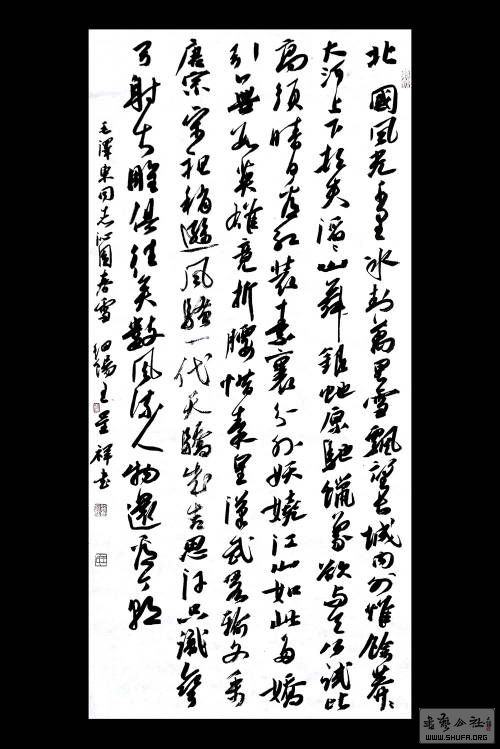 北國风光千里冰封萬里雪飄望长城内外惟餘莽々
大河上下顿失滔々山舞銀蛇原馳蠟象欲与天公试比
高须晴日看红装素裹分外妖娆江山如此多嬌
引無数英雄竞折腰惜秦皇漢武略输文采
唐宗宋祖稍遜风骚一代天驕成吉思汗只識彎
弓射大雕俱往矣数风流人物還看今朝
毛澤東同志沁园春雪 王呈祥书
書艺公社
WWW.SHUFA.ORG